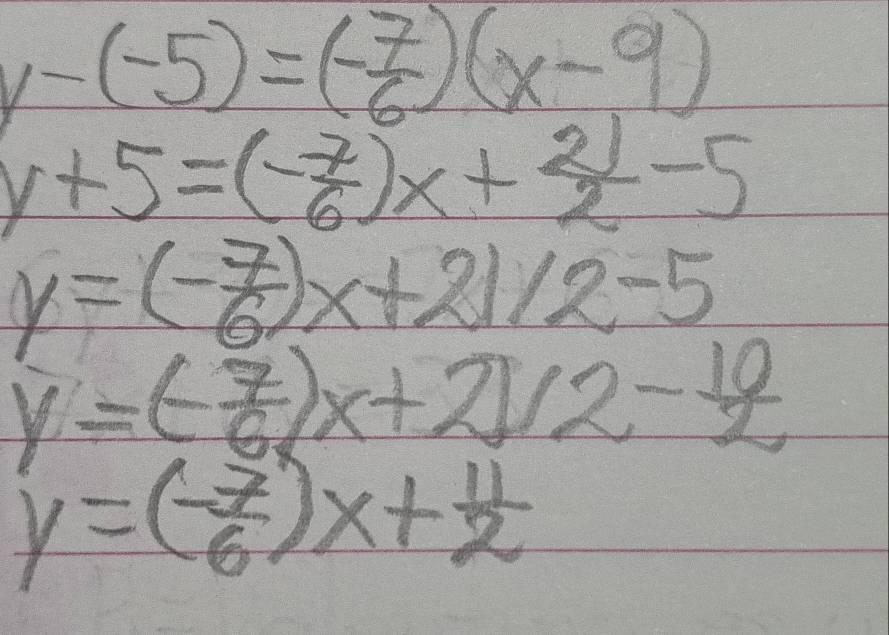 y-(-5)=(-7/6)(x-9)
y+5=(-7/6)x+21/2-5
y=(-7/6)x+21/2-5
y=(-7/6)x+21/2-10/2
y=(-7/6)x+11/2